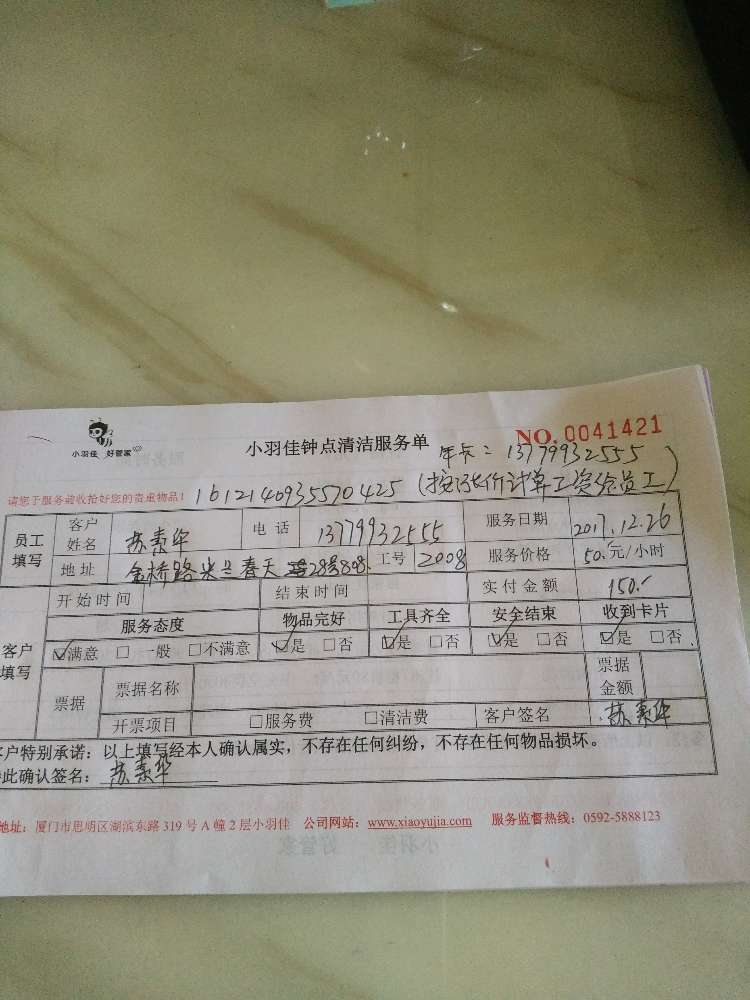 小羽佳 好管家
小羽佳钟点清洁服务单
NO. 0041421
年卡：13779932555
请您于服务前收拾好您的贵重物品！ 16121409355570425 (按次价计算工资给员工)
员工填写 客户姓名 苏素华 电话 13779932555 服务日期 2017.12.26
地址 金桥路米兰春天 28号808. 工号 2008 服务价格 50.元/小时
开始时间 结束时间 实付金额 150.-
客户填写 服务态度 物品完好 工具齐全 安全结束 收到卡片
☑满意 □一般 □不满意 ☑是 □否 ☑是 □否 ☑是 □否 ☑是 □否
票据 票据名称 票据金额
开票项目 □服务费 □清洁费 客户签名 苏素华
客户特别承诺：以上填写经本人确认属实，不存在任何纠纷，不存在任何物品损坏。
特此确认签名：苏素华
地址：厦门市思明区湖滨东路319号A幢2层小羽佳 公司网站：www.xiaoyujia.com 服务监督热线：0592-5888123